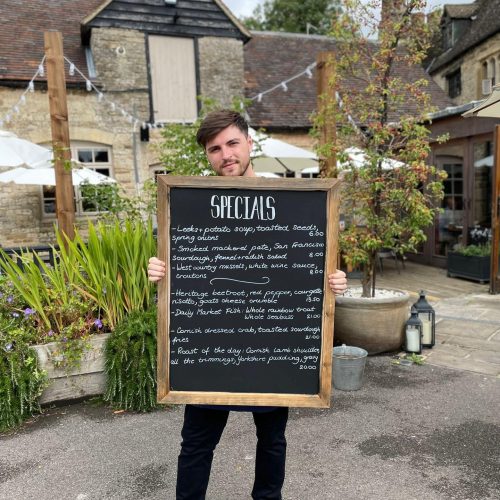 SPECIALS
- Leek & potato soup, toasted seeds,
spring onions 6.00
- Smoked mackerel pate, San Francisco
Sourdough, fennel & radish salad 8.00
- West country mussels, white wine sauce,
croutons 8.00
- Heritage beetroot, red pepper, courgette
risotto, goats cheese crumble 13.50
- Daily Market Fish: Whole rainbow trout
Whole Seabass 21.00
- Cornish dressed crab, toasted sourdough,
fries 21.00
- Roast of the day: Cornish lamb shoulder
all the trimmings, Yorkshire pudding, gravy
20.00